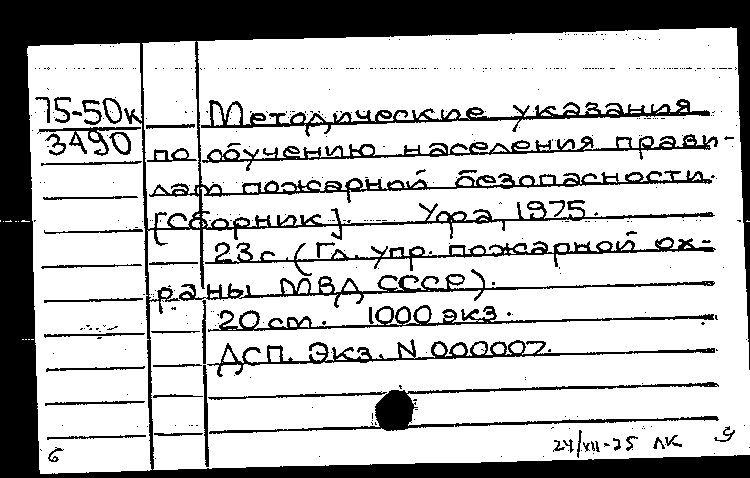 75-50к
3490
Методические указания
по обучению населения прави-
лам пожарной безопасности.
[Сборник]. Уфа, 1975.
23с. (Гл. упр. пожарной ох-
раны МВД СССР).
20 см. 1000 экз.
ДСП. Экз. N 000007.
6
24/XII-75 ЛК